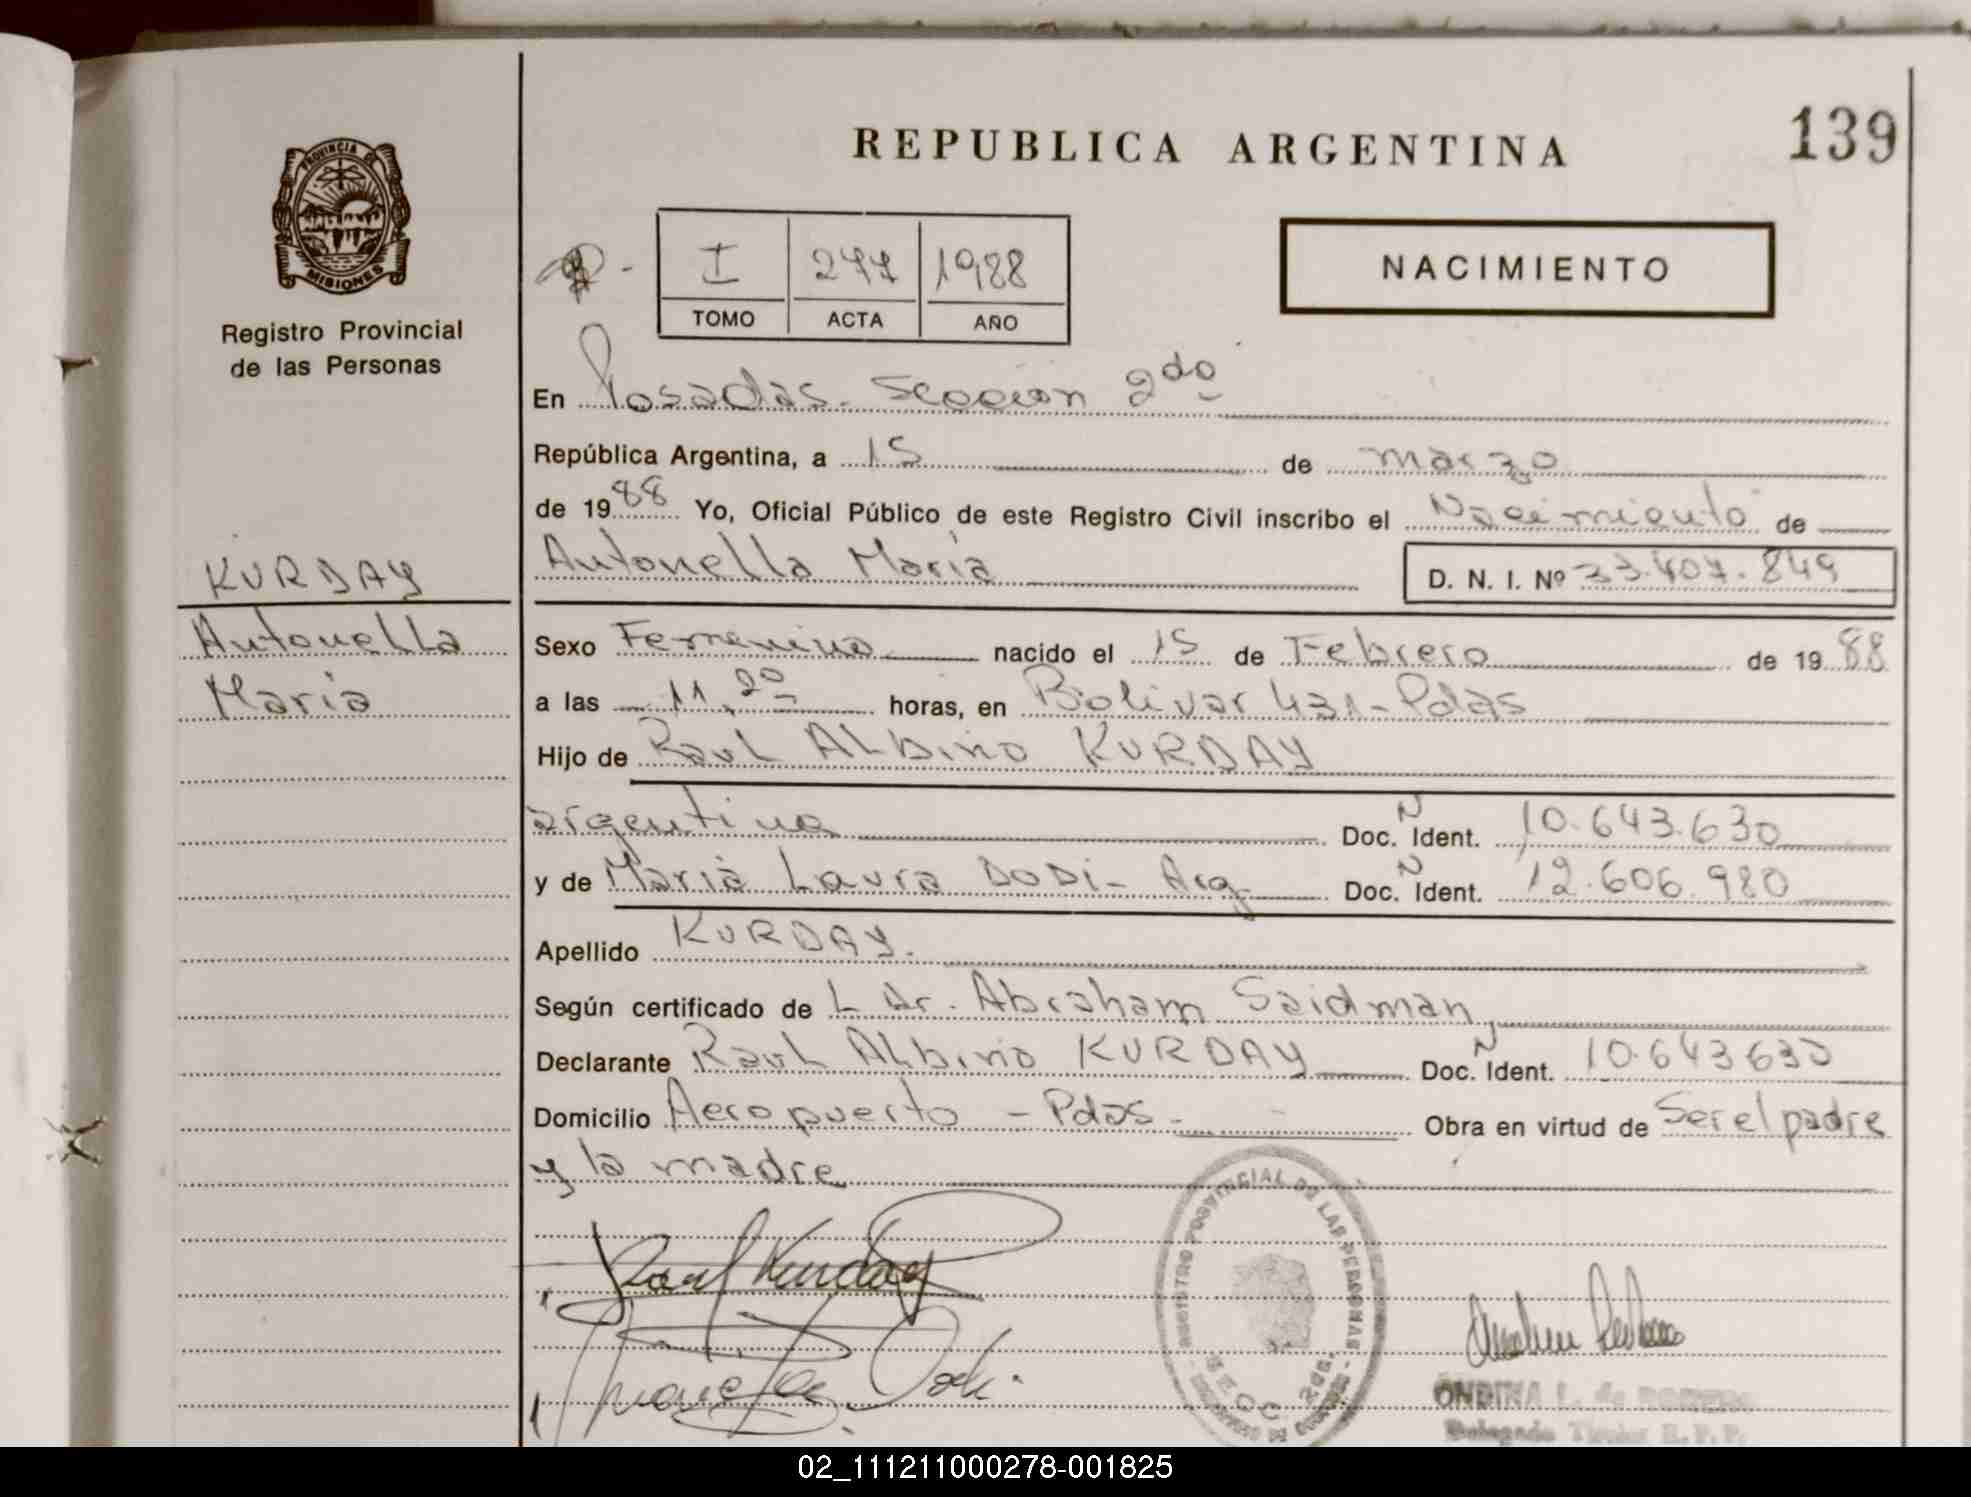 REPUBLICA ARGENTINA
139
PROVINCIA DE
MISIONES
Registro Provincial
de las Personas
I 277 1988
TOMO ACTA AÑO
NACIMIENTO
En Posadas. Sección 2do
República Argentina, a 15 de marzo
de 1988 Yo, Oficial Público de este Registro Civil inscribo el Nacimiento de
Antonella María D. N. I. Nº 33.407.849
KURDAY
Antonella
María
Sexo Femenino nacido el 15 de Febrero de 1988
a las 11,20 horas, en Bolivar 431-Pdas
Hijo de Raul Albino KURDAY
argentina Doc. N Ident. 10.643.630
y de María Laura DODI- Arg. Doc. N Ident. 12.606.980
Apellido KURDAY.
Según certificado de L Dr. Abraham Saidman,
Declarante Raul Albino KURDAY Doc. N Ident. 10.643630
Domicilio Aeropuerto - Pdas- Obra en virtud de Ser el padre
y la madre
Raul Kurday
REGISTRO PROVINCIAL DE LAS PERSONAS
SECC. 2da.
ONDINA L. de ROMERO
Delegada Titular R.P.P.
02_111211000278-001825